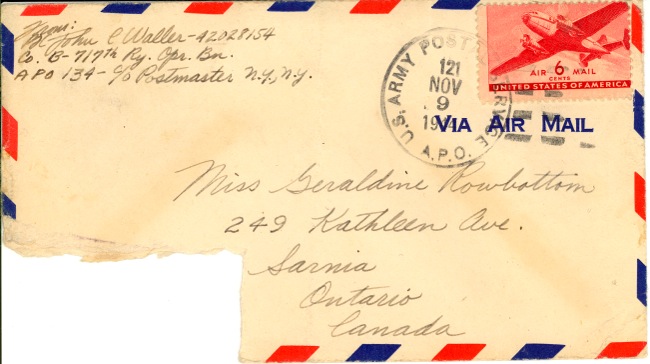 From:
John C Waller-42028154
Co. "B"-717th Ry. Opr. Bn.
APO 134-c/o Postmaster N.Y., N.Y.
U.S. ARMY POSTAL SERVICE
121
NOV
9
A.P.O.
AIR MAIL
6
CENTS
UNITED STATES OF AMERICA
VIA AIR MAIL
Miss Geraldine Rowbottom
249 Kathleen Ave.
Sarnia
Ontario
Canada